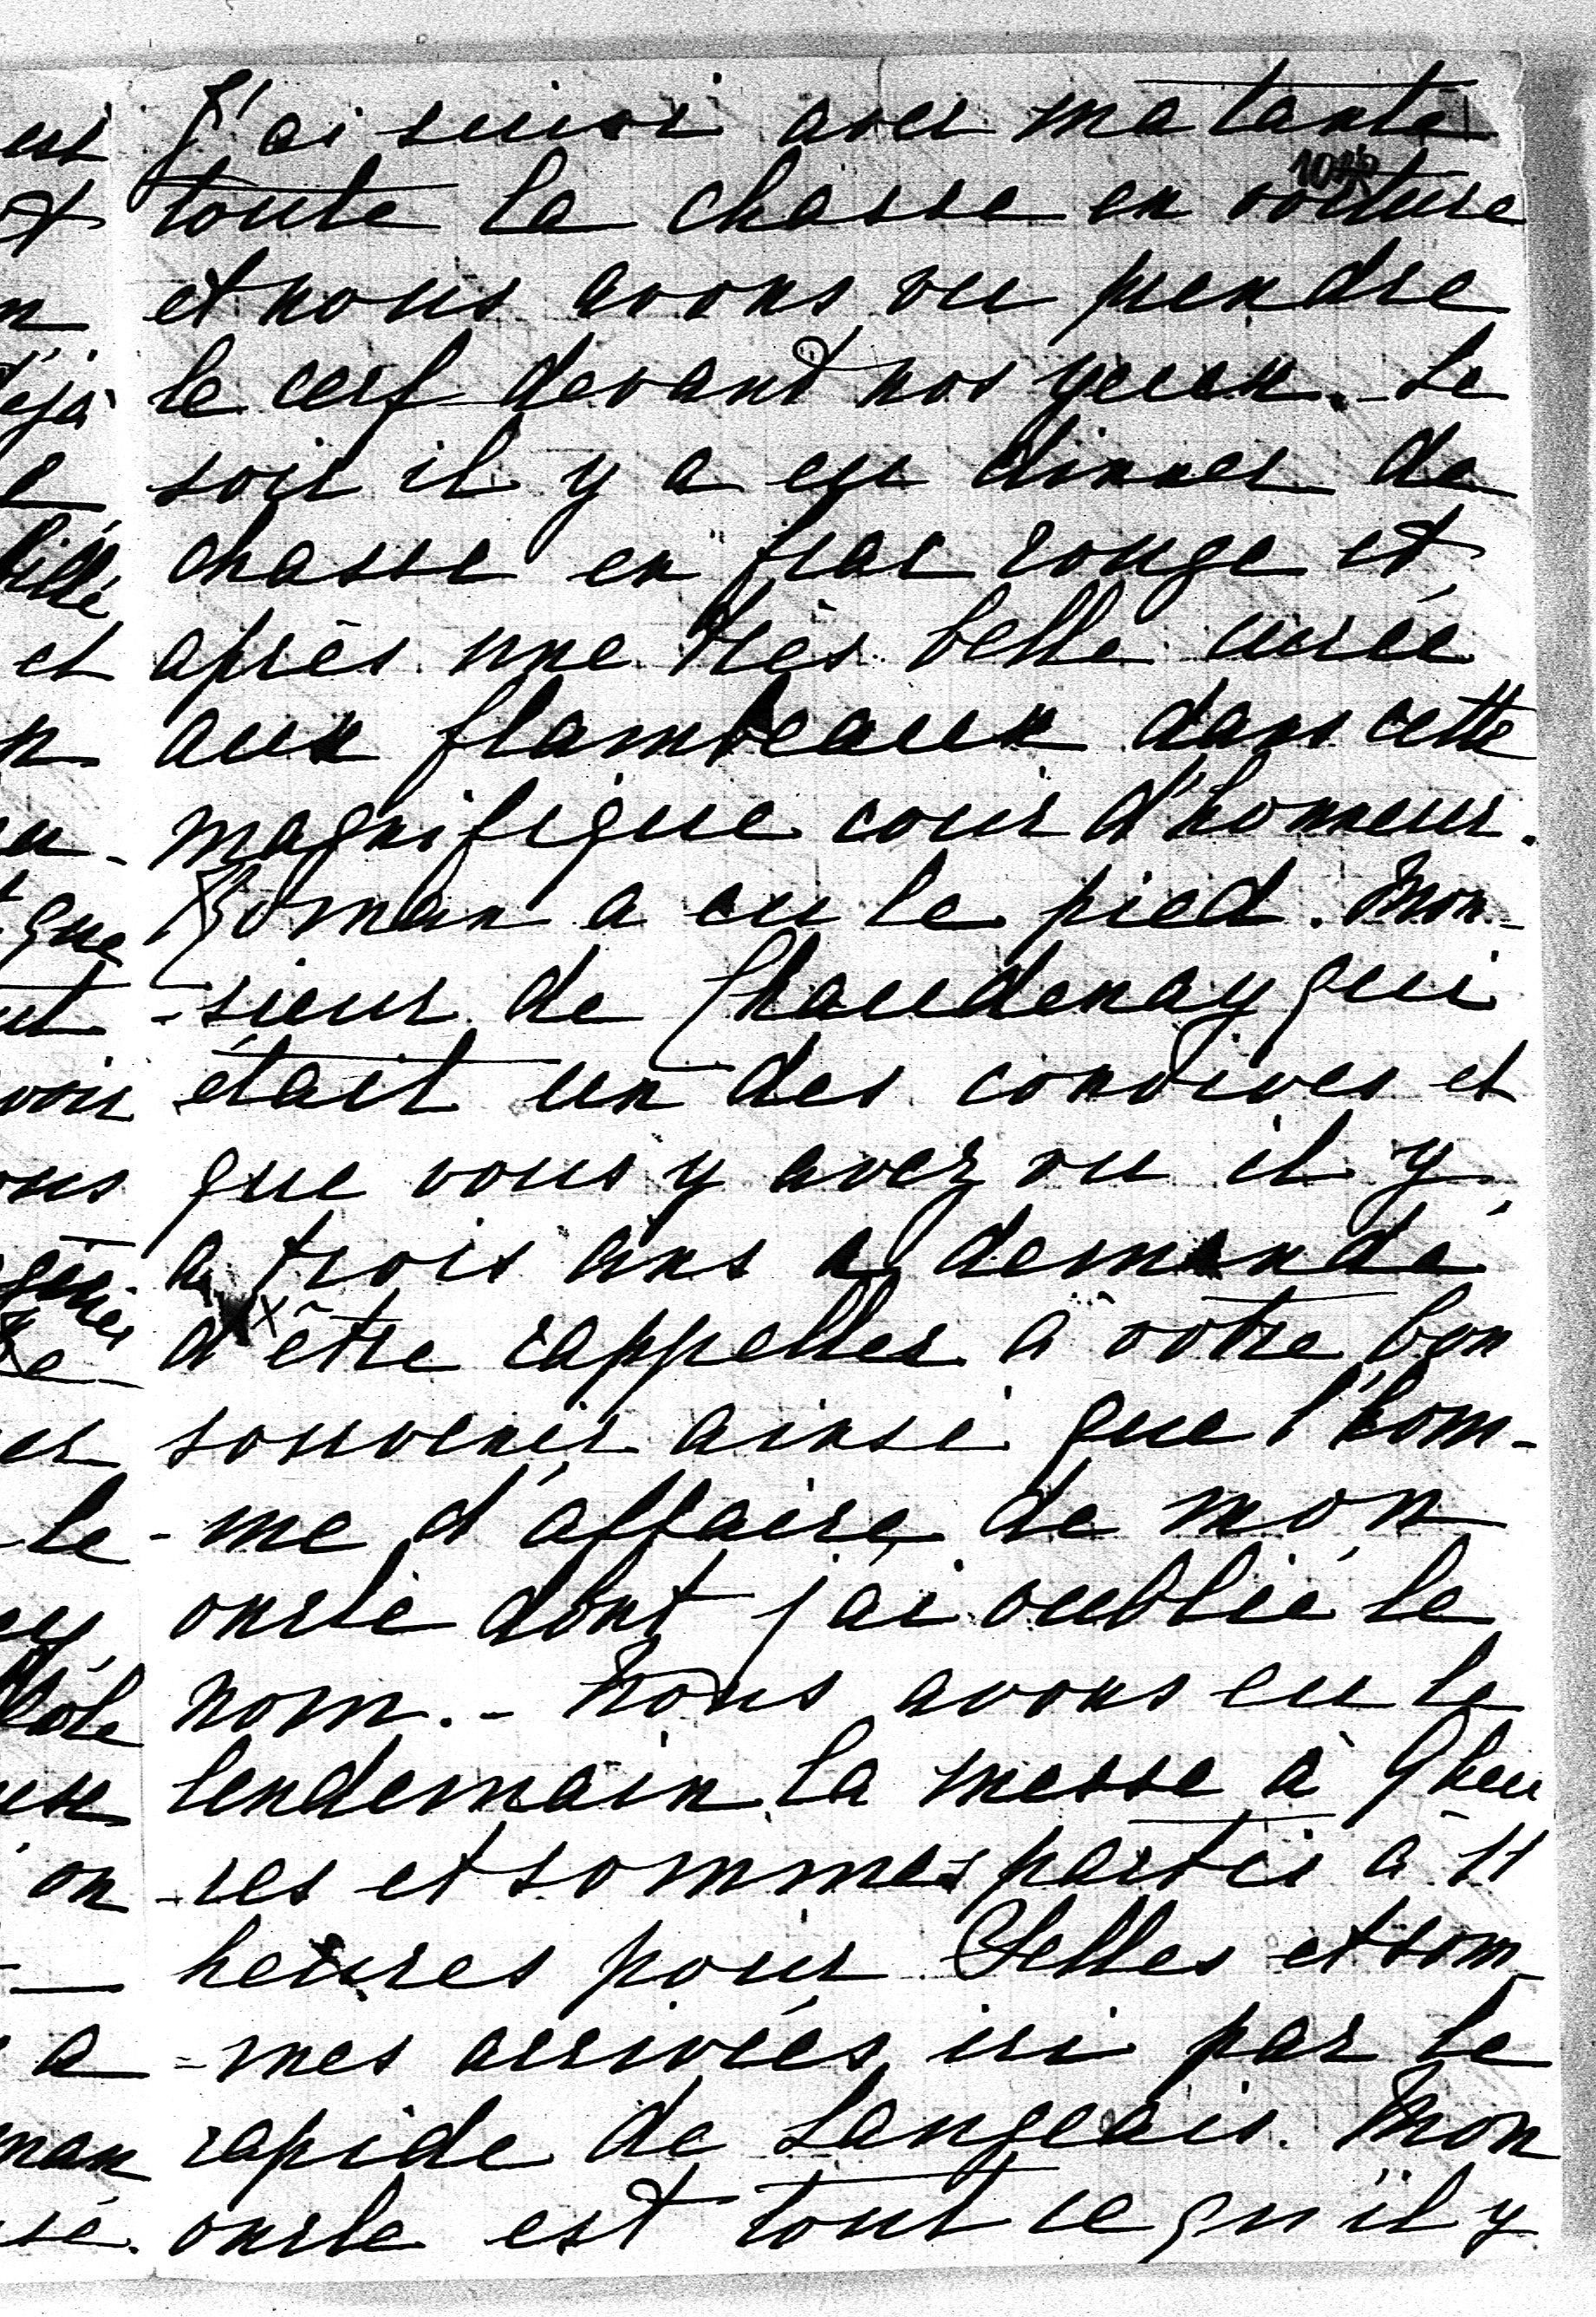 J'ai suivi avec ma tante
toute la chasse en voiture
et nous avons vu prendre
le cerf devant nos yeux. - Le
soir il y a eu dinner de
chasse en frac rouge et
après une très belle curée
aux flambeaux dans cette
magnifique cour d'honneur.
Roman a eu le pied. Mon-
-sieur de Chaudenay qui
était un des convives et
que vous y avez vu il y
a trois ans a demandé
d'être rappeller à votre bon
souvenir ainsi que l'hom-
-me d'affaire de mon
oncle dont j'ai oublié le
nom. - Nous avons eu le
lendemain la messe à 9 heu
-res et sommes partis à 11
heures pour Selles et som-
-mes arrivées ici par le
rapide de Langeais. Mon
oncle est tout ce qu'il y